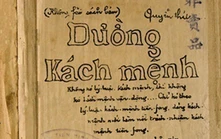 (Không phải sách bán)
Quyển thứ
Đường
Kách mệnh
Không có lý luận kách mệnh, thì không
có kách mệnh vận động... Chỉ có theo
lý luận kách mệnh tiền phong, đảng kách
mệnh mới làm nổi trách nhiệm kách
mệnh tiền phong
非賣品